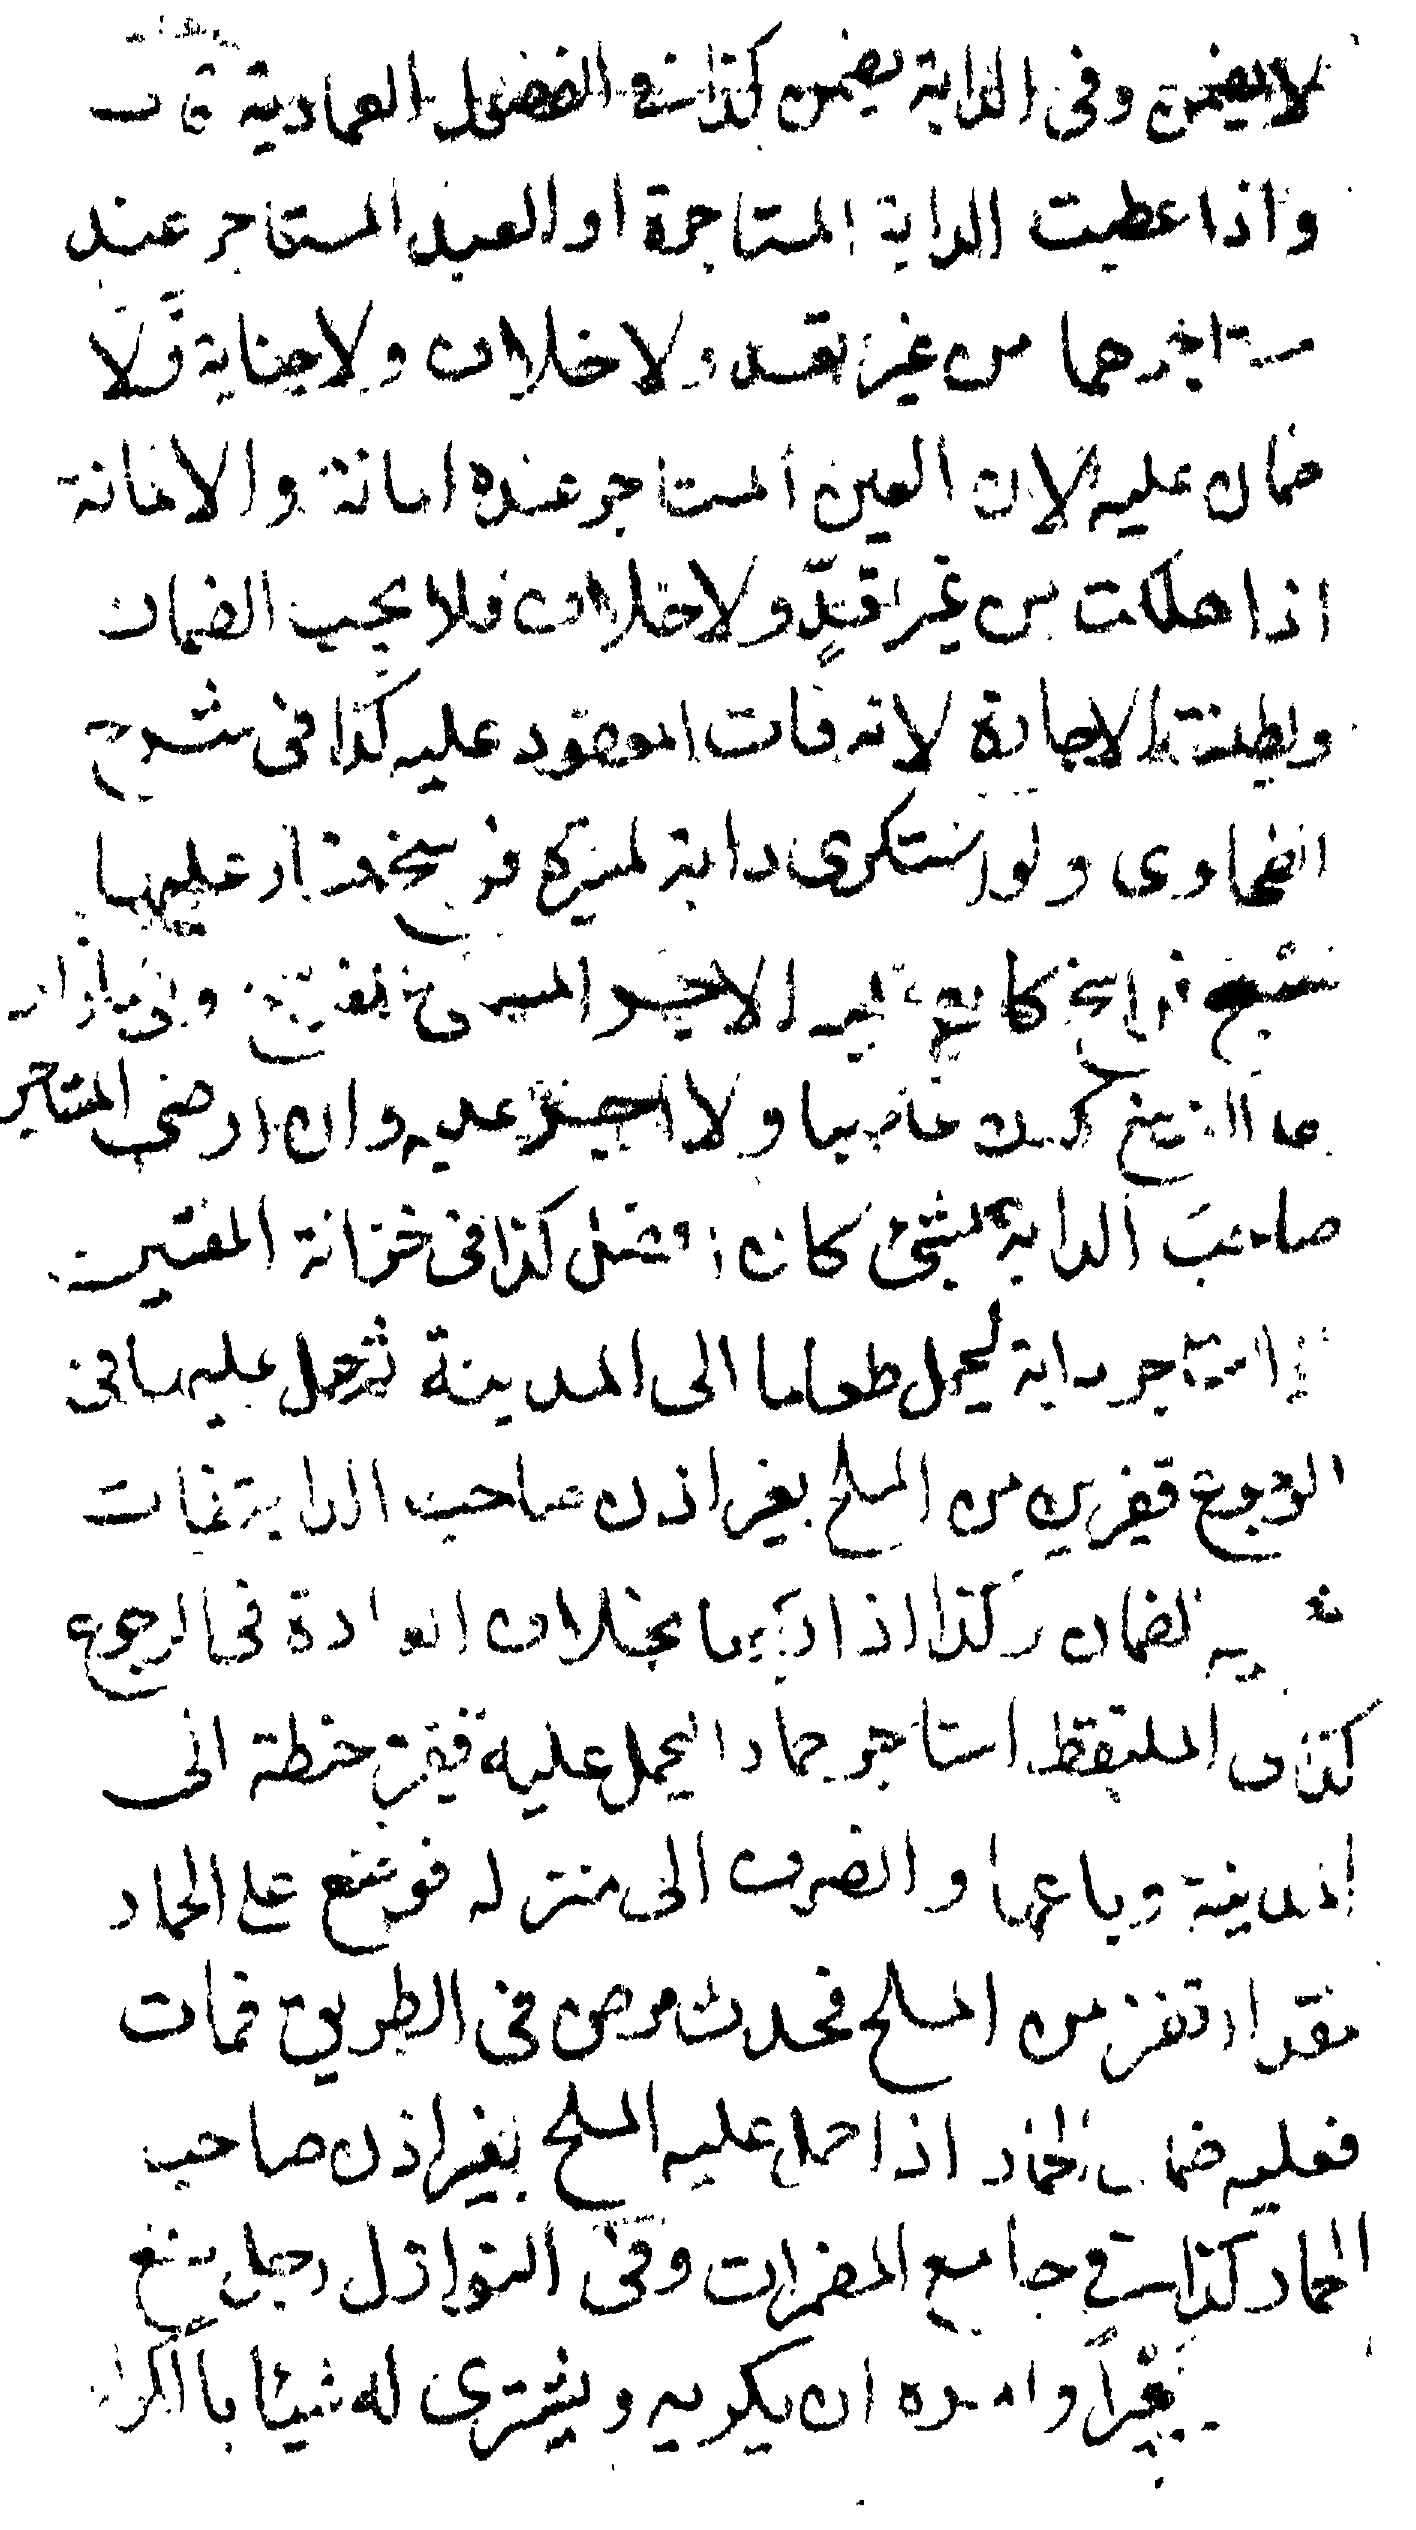 لا يضمن وفي الدابة يضمن كذا في الفصول العمادية قال
واذا عطبت الدابة المستاجرة او العبد المستاجر عند
مستاجرهما من غير تعد ولا خلاف ولا جناية فلا
ضمان عليه لان العين المستاجر عنده امانة والامانة
اذا هلكت من غير تعدٍّ ولا خلاف فلا يجب الضمان
وبطلت الاجارة لانه فات المعقود عليه كذا في شرح
الطحاوى ولو استكرى دابة لعشرة فراسخ فزاد عليها
فراسخ كان عليه الاجر المسمى وفي ما زاد
كان غاصبا ولا اجر عليه وان ارضى المستاجر
صاحب الدابة بشئ كان افضل كذا في خزانة المفتين
استاجر دابة ليحمل طعاما الى المدينة ثم حمل عليها في
الرجوع قفيزين من الملح بغير اذن صاحب الدابة فماتت
الضمان وكذا اذا ركبها بخلاف العادة في الرجوع
كذا في الملتقط استاجر حمارا ليحمل عليه قفيز حنطة الى
المدينة وباعها وانصرف الى منزله فوضع على الحمار
مقدار قفيز من الملح فحدث مرض في الطريق فمات
فعليه ضمان الحمار اذا حمل عليه الملح بغير اذن صاحب
الحمار كذا في جامع المضمرات وفي النوازل رجل دفع
بعيرا وامره ان يكريه ويشترى له شيئا بالكرا